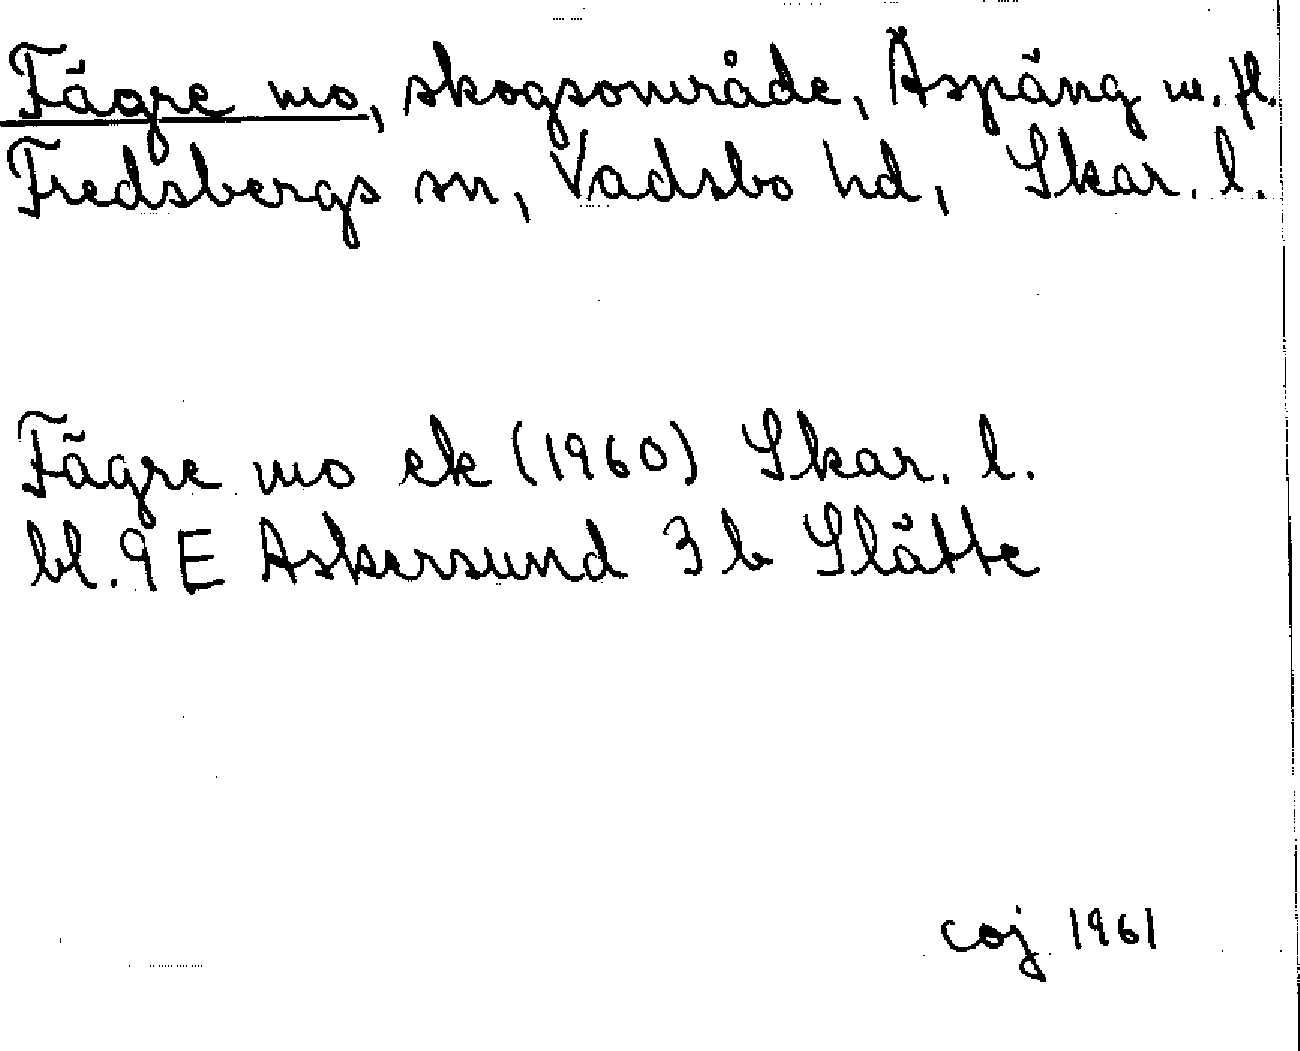 Fägre mo, skogsområde, Äspäng m. fl.
Fredsbergs sn, Vadsbo hd, Skar. l.
Fägre mo ek (1960) Skar. l.
bl. 9 E Askersund 3 b Slätte
coj 1961